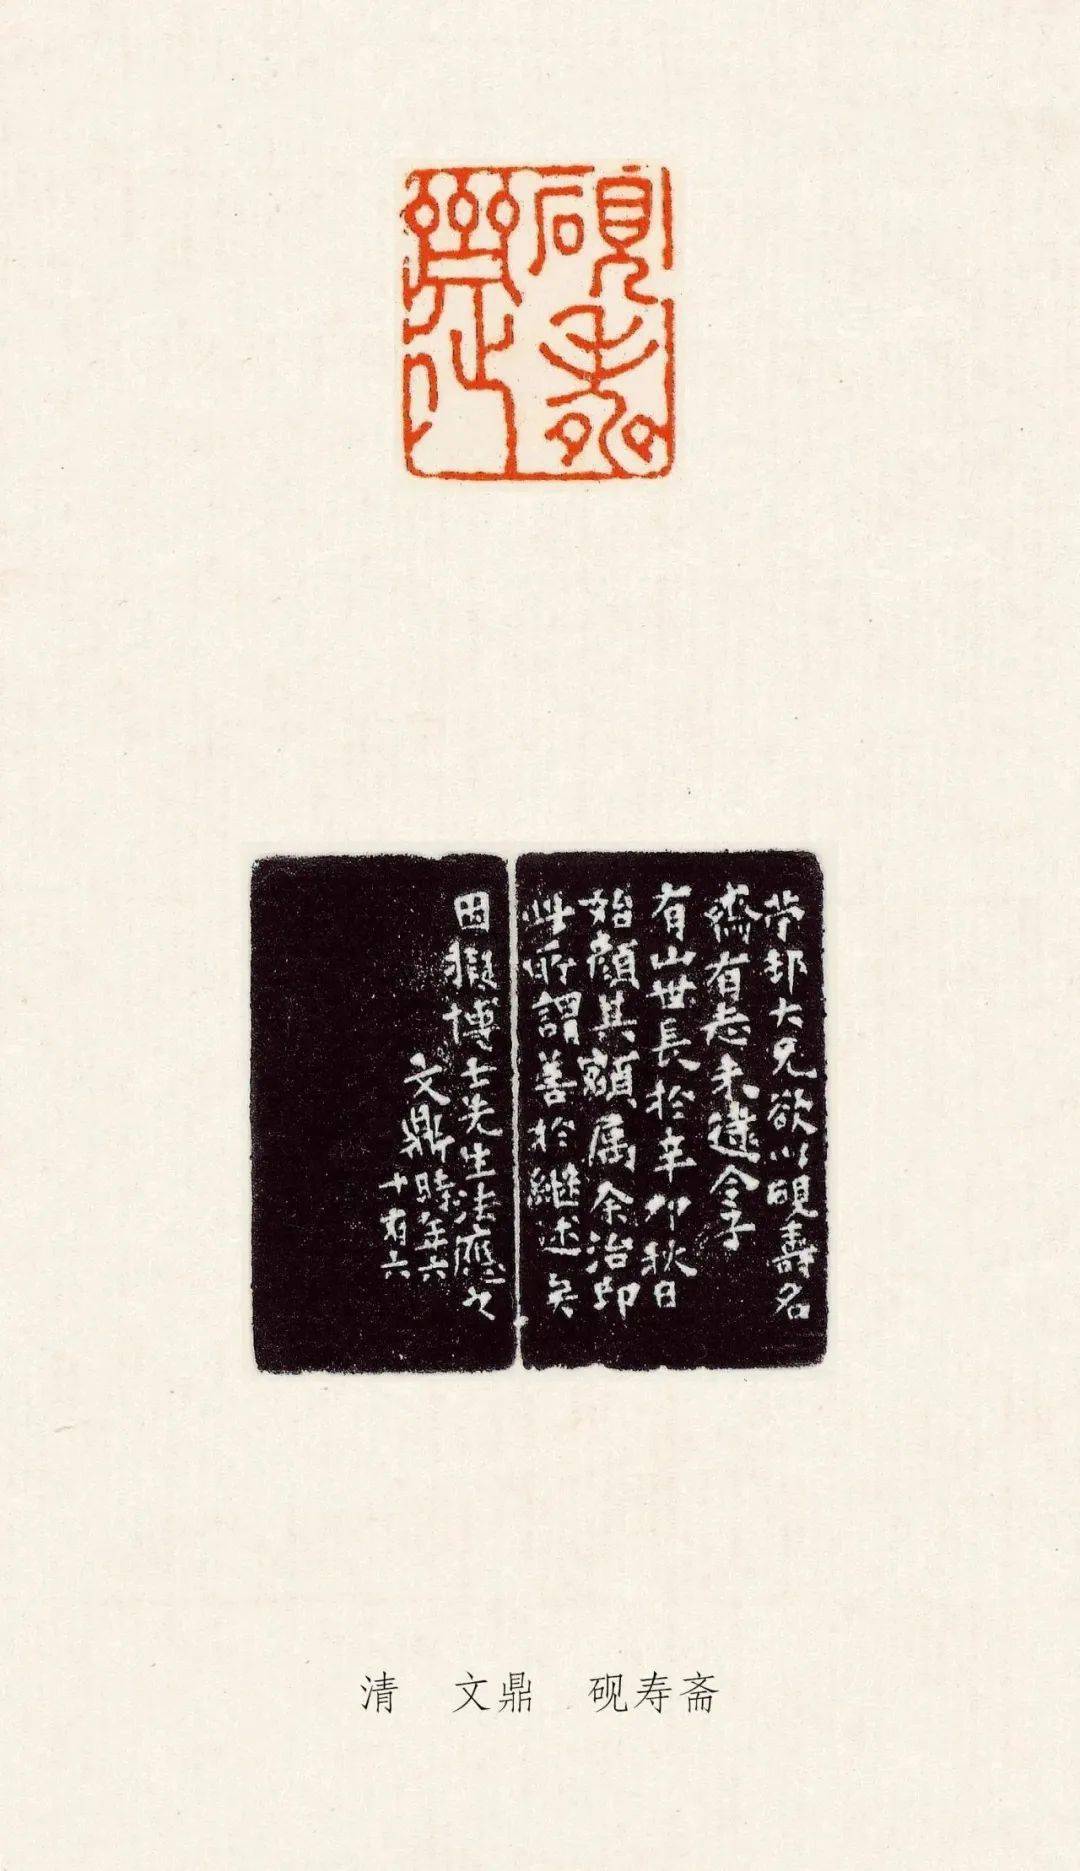 硯壽
齋
邨大兄欲以硯壽名
齋有志未逮令子
有山世長於辛卯秋日
始顏其額属余治印
此所謂善於繼述矣
因擬博士先生法應之
文鼎時年六
十有六
清 文鼎 砚寿斋